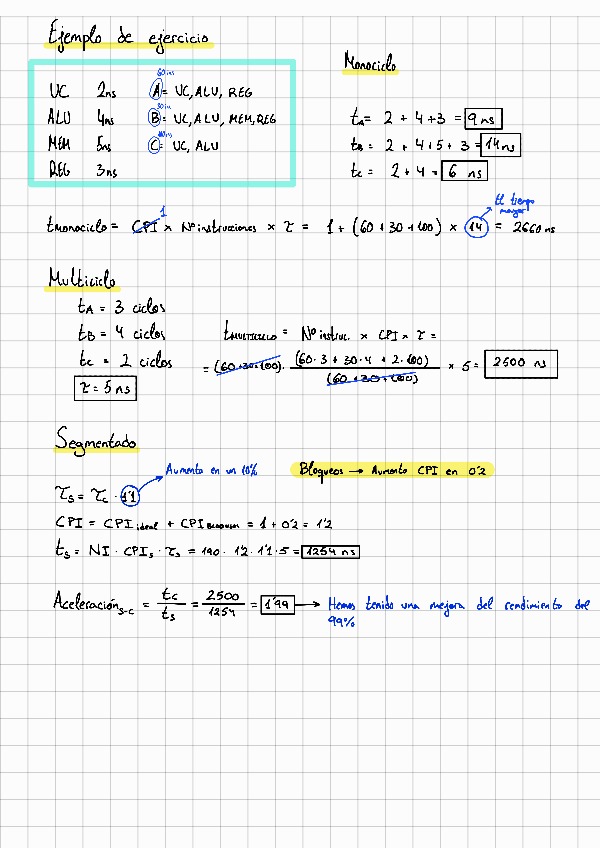 Ejemplo de ejercicio
UC 2ns
ALU 4ns
MEM 5ns
REG 3ns
60 ins
A = UC, ALU, REG
30 ins
B = UC, ALU, MEM, REG
100 ins
C = UC, ALU
Monociclo
tA = 2 + 4 + 3 = 9 ns
tB = 2 + 4 + 5 + 3 = 14 ns
tC = 2 + 4 = 6 ns
El tiempo
mayor
1
tmonociclo = CPI × Nº instrucciones × τ = 1 + (60 + 30 + 100) × 14 = 2660 ns
Multiciclo
tA = 3 ciclos
tB = 4 ciclos
tC = 2 ciclos
τ = 5 ns
tMULTICICLO = Nº instruc. × CPI × τ =
= (60 + 30 + 100) · (60 · 3 + 30 · 4 + 2 · 100) / (60 + 30 + 100) × 5 = 2500 ns
Segmentado
Aumento en un 10%
Bloqueos → Aumento CPI en 0'2
τs = τc · 1'1
CPI = CPI ideal + CPI BLOQUEOS = 1 + 0'2 = 1'2
ts = NI · CPIs · τs = 190 · 1'2 · 1'1 · 5 = 1254 ns
Aceleración s-c = tc / ts = 2500 / 1254 = 1'99 → Hemos tenido una mejora del rendimiento del
99%